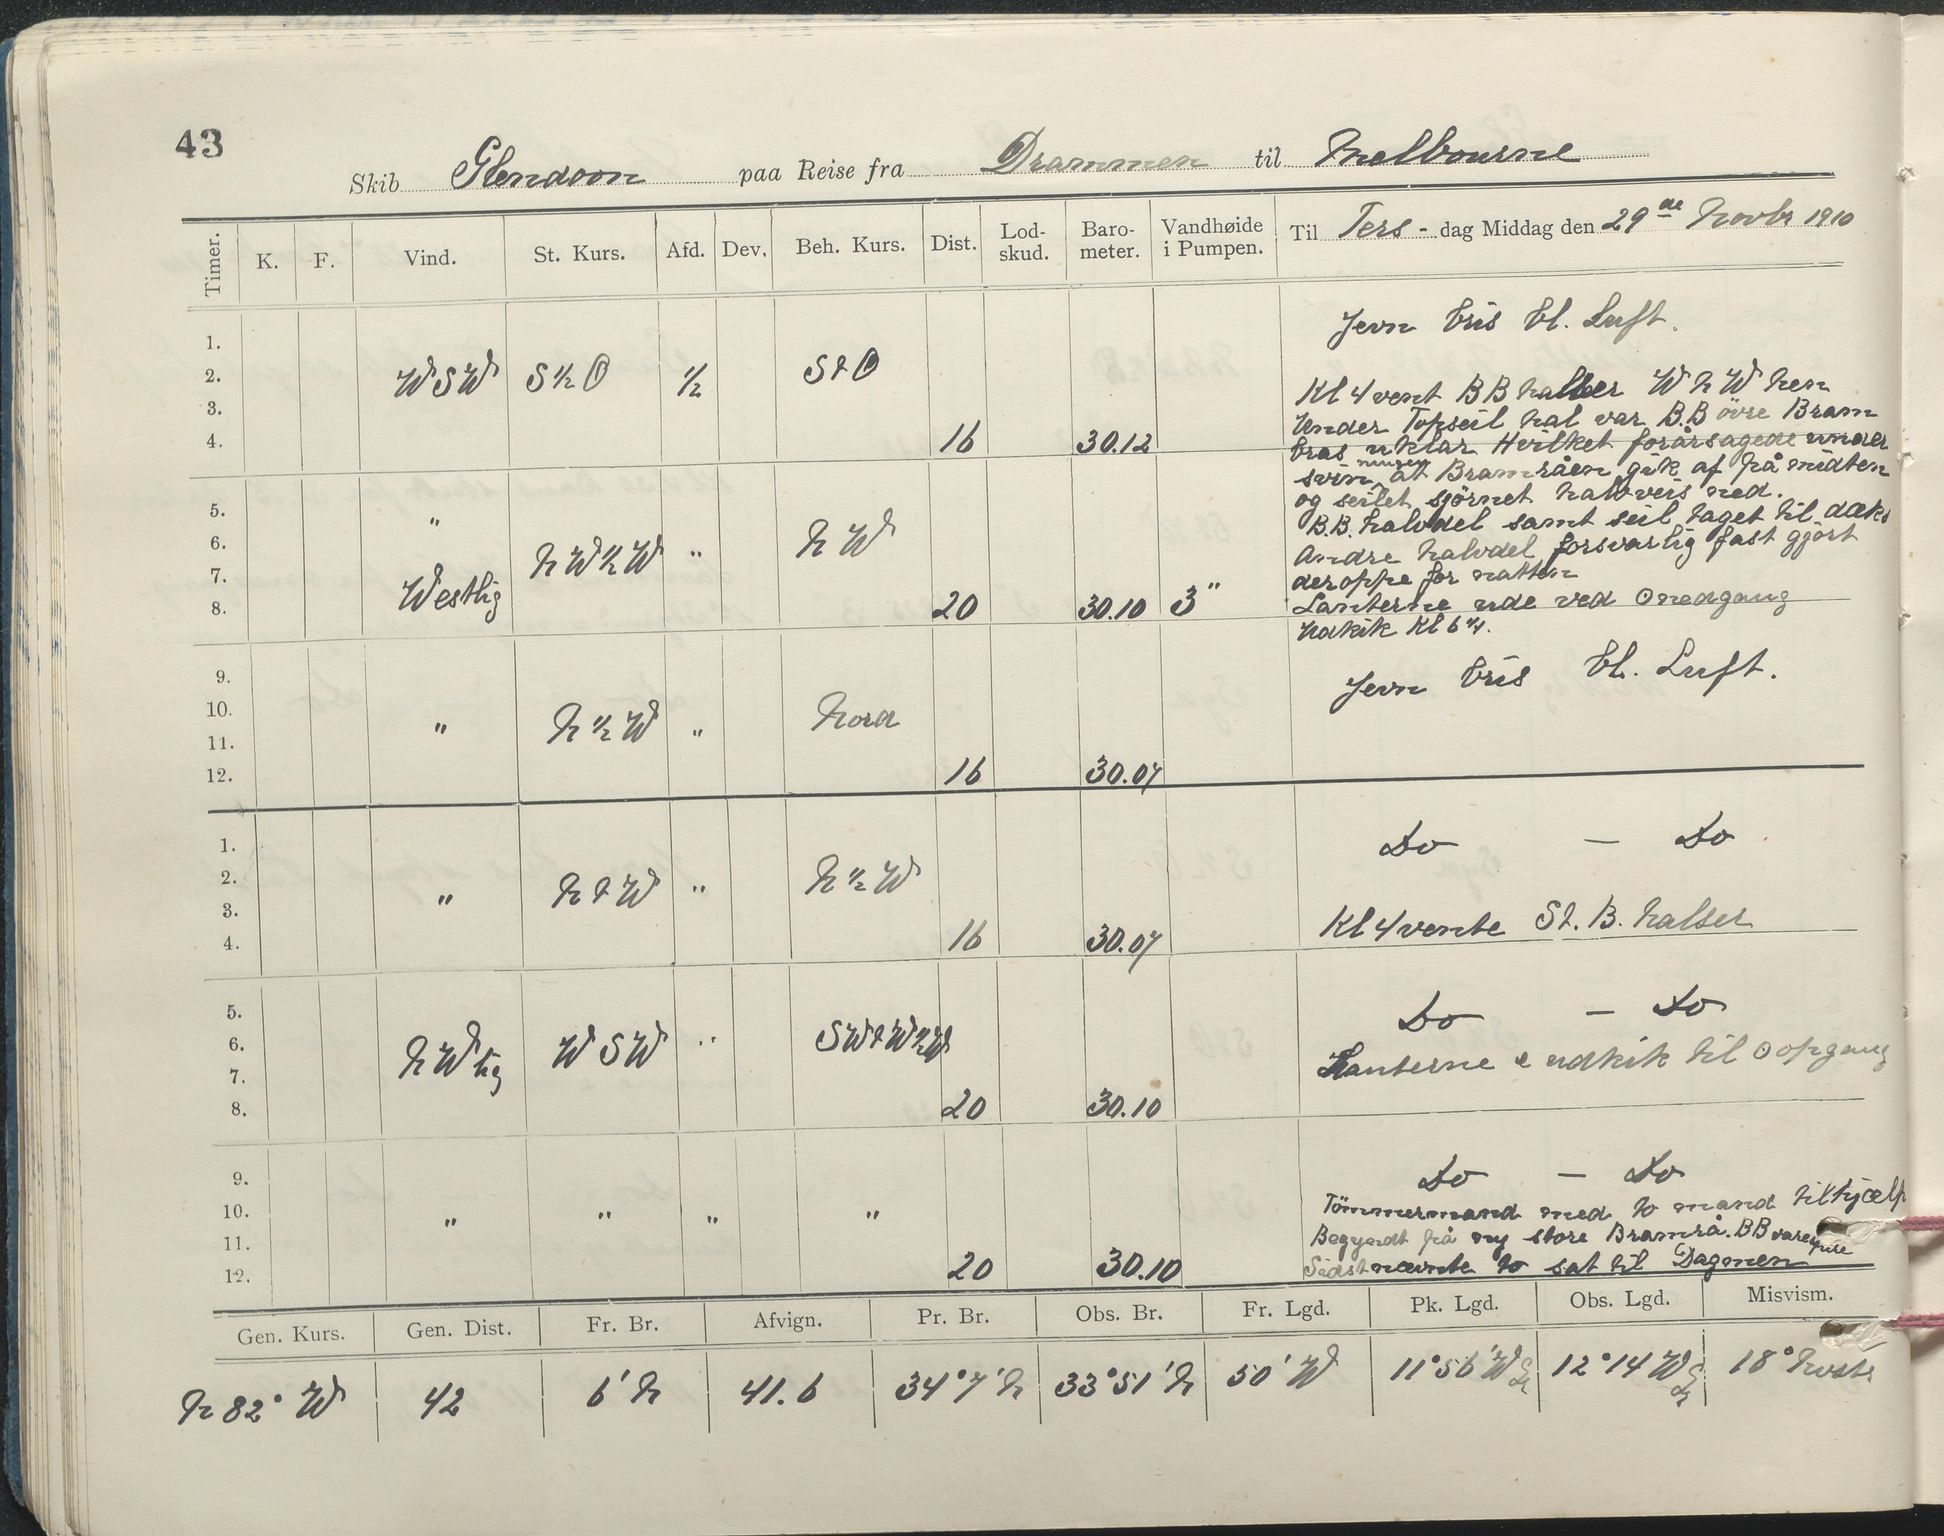 43
Skib Glendoon paa Reise fra Drammen til Melbourne
Timer. K. F. Vind. St. Kurs. Afd. Dev. Beh. Kurs. Dist. Lod-skud. Baro-meter. Vandhøide i Pumpen. Til Ters- dag Middag den 29de Novbr 1910
Jevn bris bl. Luft.
1.
2. WSW S½O ½ StO
3.
4. 16 30.12
Kl 4 vent BB halser WNW hen
Under Topseil hal var B.B övre Bram
bras uklar Hvilket forårsagede under
svinningen at Bramråen gik af på midten
og seilet sjörnet halvveis ned.
B.B. halvdel samt seil taget til dæks
Andre halvdel forsvarlig fast gjört
deroppe for natten
Lanterne ude ved Onedgang
Udkik Kl 6
5. "
6. NW½W " NW
7. Westlig
8. 20 30.10 3"
Jevn bris bl. Luft.
9.
10. " N½W " Nord
11.
12. 16 30.07
Do — Do
1.
2. " NtW " N½W
3.
4. 16 30.07
Kl 4 vente St. B. halser
Do — Do
5.
6. NWlig WSW " SWtW½W
7.
8. 20 30.10
Lanterne & udkik til Oopgang
Do — Do
9.
10. " " " "
11.
12. 20 30.10
Tömmermand med to mand til hjælp
Begyndt på ny store Bramrå. BB
Sidstnævnte to sat til Dagmen
Gen. Kurs. Gen. Dist. Fr. Br. Afvign. Pr. Br. Obs. Br. Fr. Lgd. Pk. Lgd. Obs. Lgd. Misvism.
N 82° W 42 6' N 41.6 34°7' N 33°51' N 50' W 11°56' W Gr 12°14 W Gr 18°